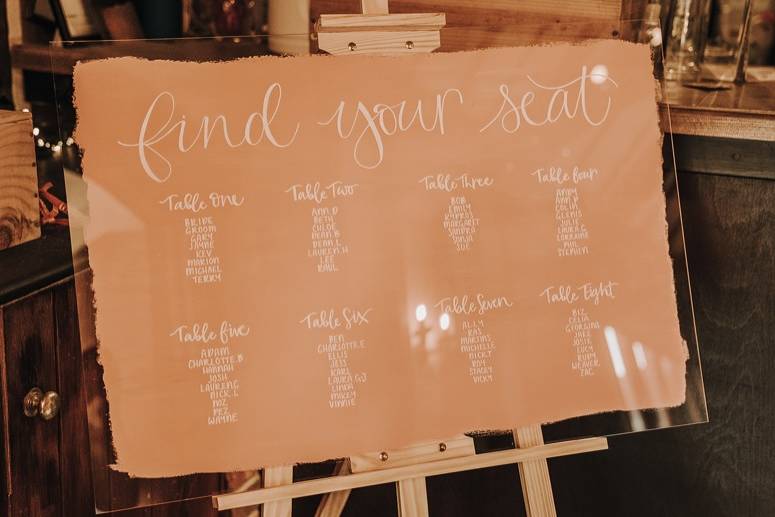 find your seat
Table One
BRIDE
GROOM
GARY
JAYNE
KEV
MARION
MICHAEL
TERRY
Table Two
ANN D
BETH
CHLOE
DEAN B
DEAN L
LAUREN H
LEE
PAUL
Table Three
BOB
EMILY
KYPROS
MARGARET
SANDRA
SONJA
SUE
Table four
ANDY
ANN P
COLIN
GLENIS
JULIE
LAURA G
LORRAINE
PHIL
STEPHEN
Table five
ADAM
CHARLOTTE B
HANNAH
JOSH
LAUREN G
NICK L
NOZ
PEZ
WAYNE
Table Six
BEN
CHARLOTTE E
ELLIS
JESS
KARL
LAURA GJ
LINDA
MIKEY
VINNIE
Table Seven
ALLY
KAS
MARTINS
MICHELLE
NICKY
ROY
STACEY
VICKY
Table Eight
BIZ
CELIA
GEORGINA
JAKE
JOSIE
LUCY
RUDY
WEAVER
ZAC